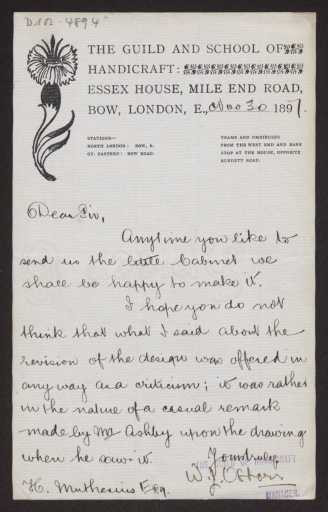 D102-4894
THE GUILD AND SCHOOL OF
HANDICRAFT:
ESSEX HOUSE, MILE END ROAD,
BOW, LONDON, E., Nov 30 1897.
STATIONS—
NORTH LONDON: BOW, E.
GT. EASTERN: BOW ROAD.
TRAMS AND OMNIBUSES
FROM THE WEST END AND BANK
STOP AT THE HOUSE, OPPOSITE
BURDETT ROAD.
Dear Sir,
Anytime you like to
send us the Cabinet we
shall be happy to make it.
I hope you do not
think that what I said about the
revision of the design was offered in
any way as a criticism; it was rather
in the nature of a casual remark
made by Mr Ashby upon the drawings
when he saw it.
Yours truly
OF HANDICRAFT
W. J.
H. Muthesius Esq.
MANAGER.